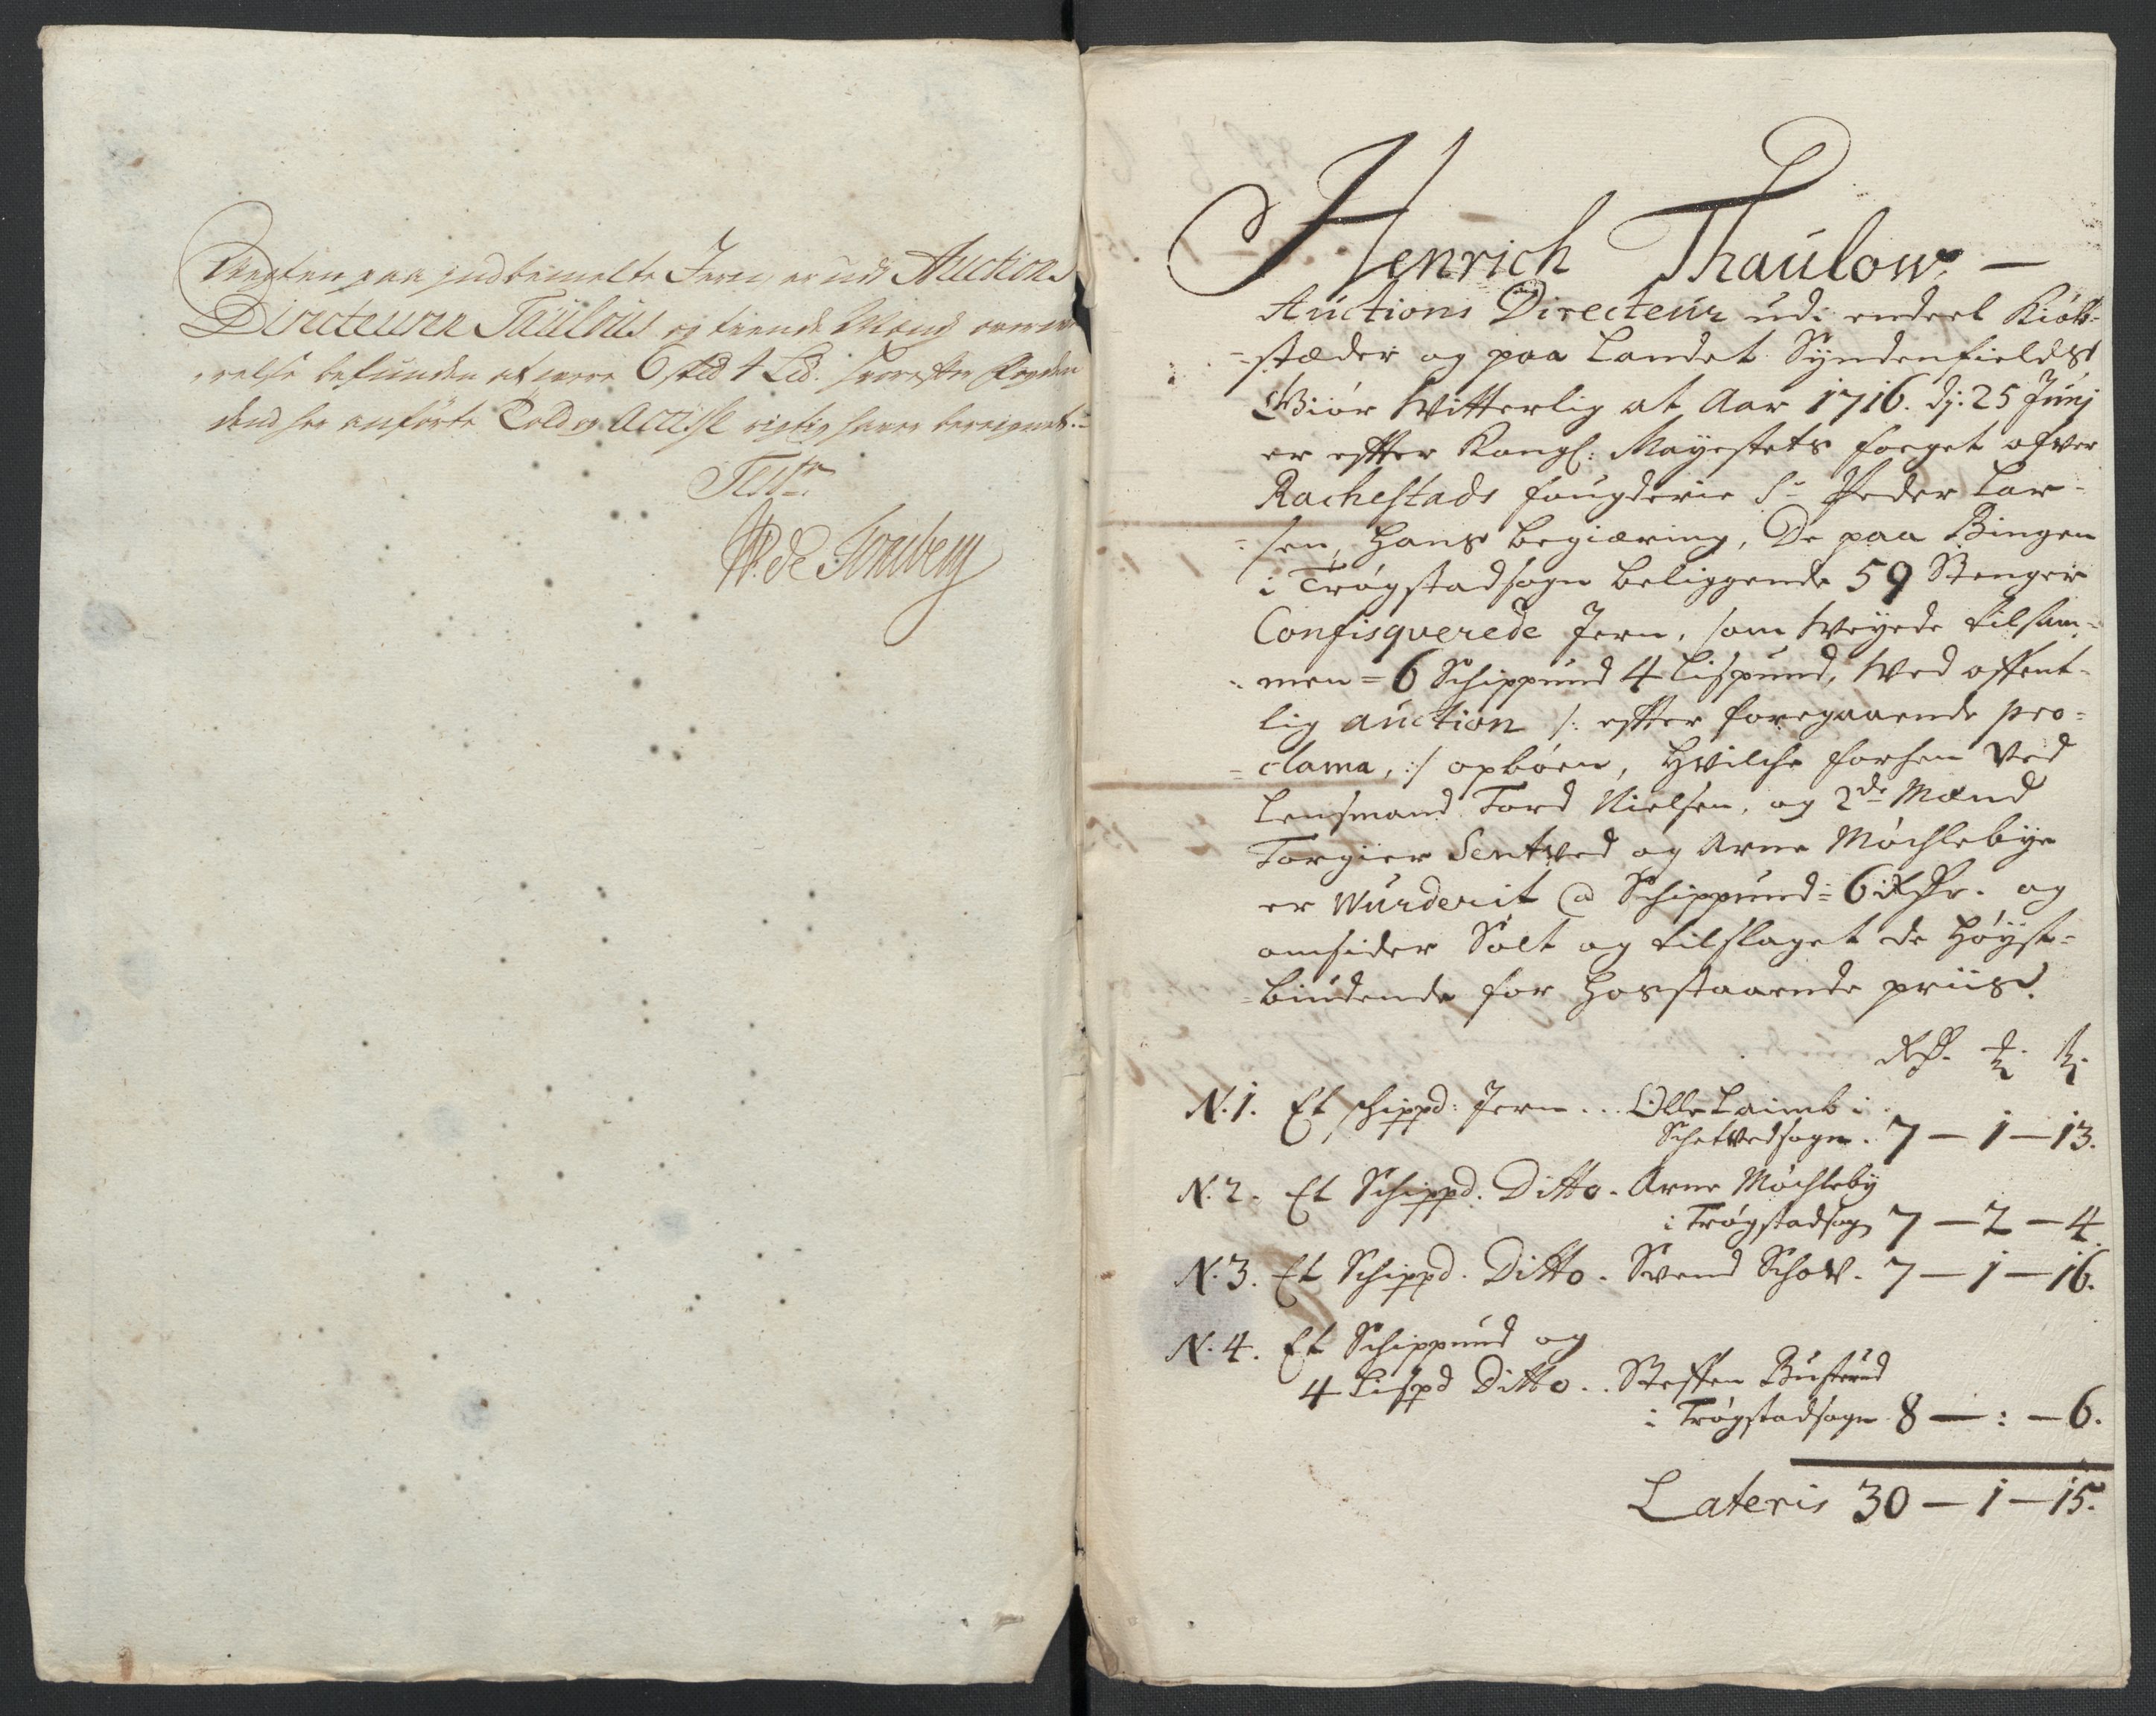 Vegten paa indbemelte Jern, er udj Auctions
Directeuren Taulous og tvende Mends overvæ-
relse befunden at være 6 sk℔ 4 L℔. hvorefter Fogden
dend her anførte Told og Accise rigtig haver bereignet.
Test:
WP: de Tonsberg
Henrich Thaulow. —
Auctions Directeur udi endeel Kiöb-
-stæder og paa Landet Syndenfields
Giör Witterlig at Aar 1716. dj: 25 Junj
er effter Kongl: Mayestets foeget ofver
Rachestads fougderie Sr Peder Lar-
-sen, Hans begiæring, De paa Bingen
i Trögstadsogn beliggende 59 Stenger
Confisqverede Jern, som Weyede tilsam-
-men = 6 Schippund 4 Lispund, Wed offent-
lig auction /: effter foregaaende pro-
-clama, :/ opboen, Hvilche forhen Ved
Lensmand Tord Nielsen, og 2de Mænd
Torgier Sentved og Arne Möchlebye
er Wurderit @ Schippund = 6 Rdr. og
omsider Solt og tilslaget de Höyst-
-biudende for Hosstaaende priis.
Rd. ℔. ß.
N.1. Et schippd: Jern... Olle Laimb i
Schetvedsogn. 7 — 1 — 13.
N.2. Et Schippd. Ditto. Arne Möchleby
i Trögstadsogn 7 — 2 — 4.
N.3. Et Schippd. Ditto. Svend Schov. 7 — 1 — 16.
N.4. Et Schippund og
4 Lispd Ditto.. Steffen Busterud
i Trögstadsogn 8 — : — 6.
Lateris 30 — 1 — 15.